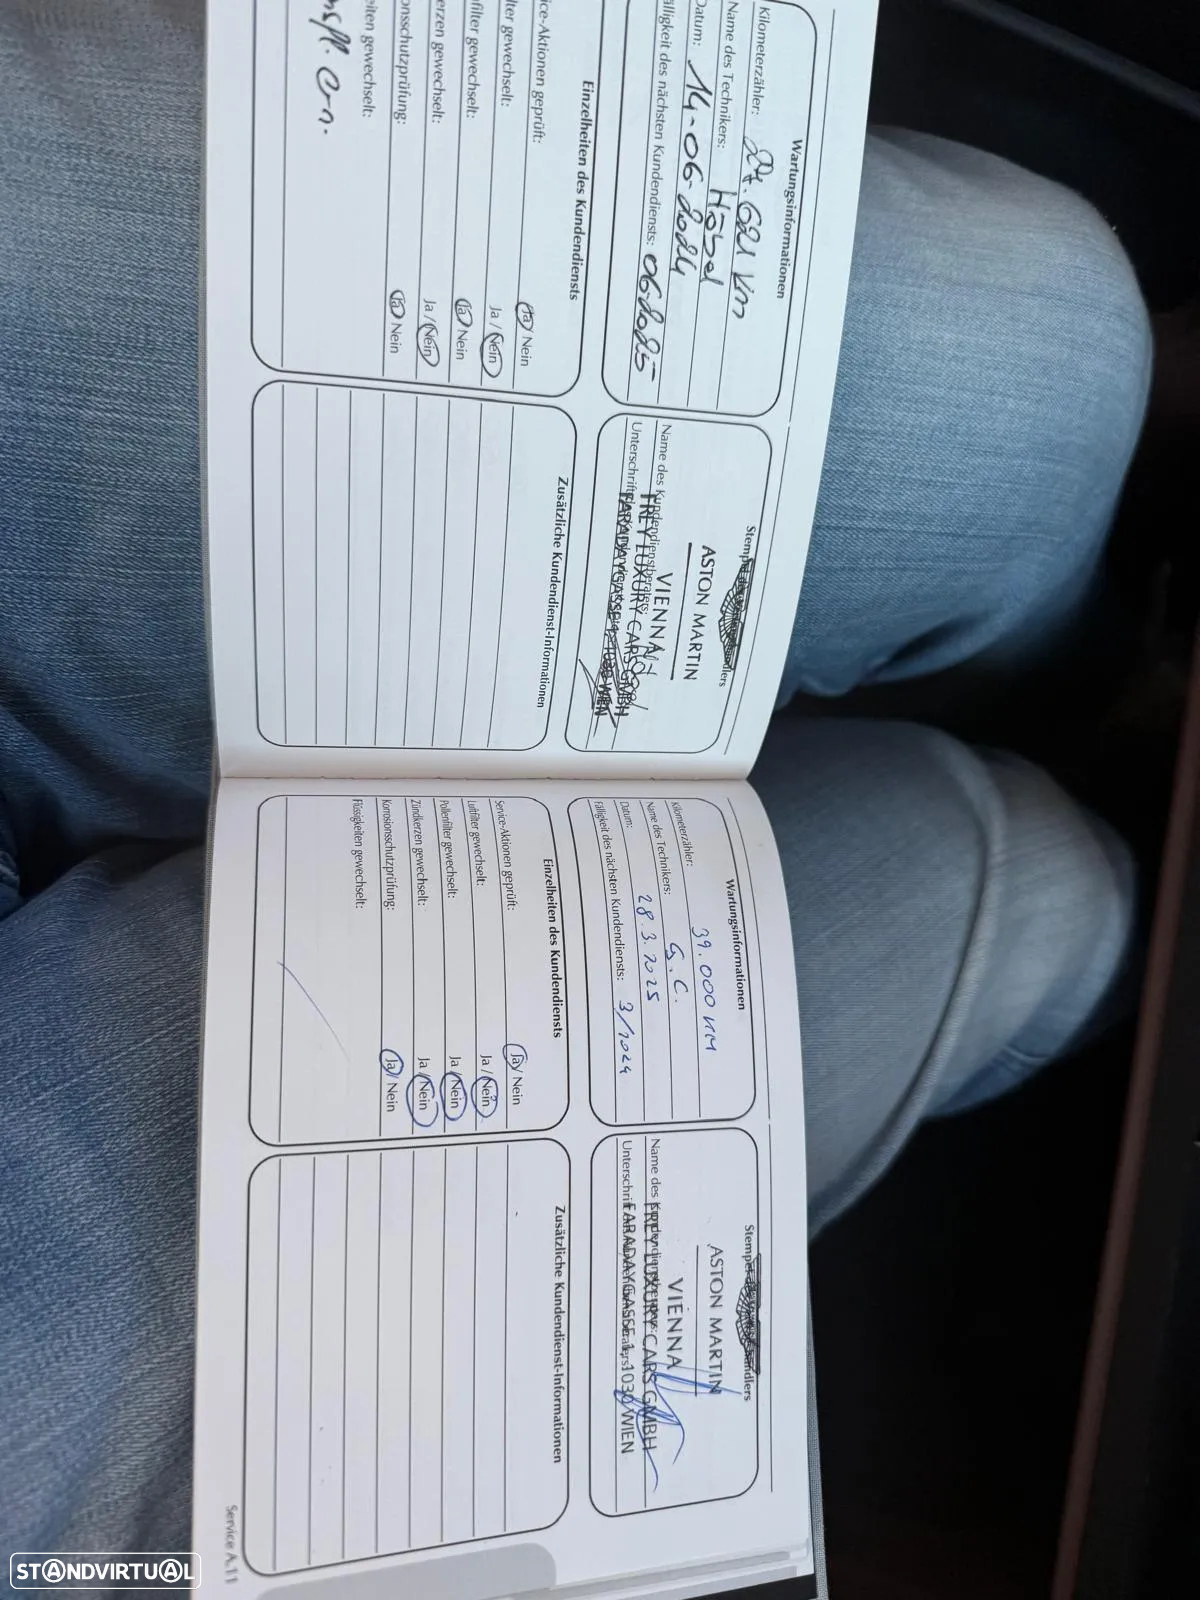 Wartungsinformationen
Kilometerzähler: 27.621 km
Name des Technikers: Habel
Datum: 14-06-2024
älligkeit des nächsten Kundendiensts: 06-2025
Stempel des händlers
ASTON MARTIN
VIENNA
Name des Kundendienstberaters:
FREY LUXURY CARS GMBH
Unterschrift des Kundendienstberaters:
FARADAYGASSE 1, 1030 WIEN
Einzelheiten des Kundendiensts
ice-Aktionen geprüft: Ja / Nein
lter gewechselt: Ja / Nein
nfilter gewechselt: Ja / Nein
erzen gewechselt: Ja / Nein
onsschutzprüfung: Ja / Nein
eiten gewechselt:
Zusätzliche Kundendienst-Informationen
Wartungsinformationen
Kilometerzähler: 39.000 KM
Name des Technikers: G.C.
Datum: 28.3.2025
Fälligkeit des nächsten Kundendiensts: 3/2024
Stempel des händlers
ASTON MARTIN
VIENNA
Name des Kundendienstberaters:
FREY LUXURY CARS GMBH
Unterschrift des Kundendienstberaters:
FARADAYGASSE 1, 1030 WIEN
Einzelheiten des Kundendiensts
Service-Aktionen geprüft: Ja / Nein
Luftfilter gewechselt: Ja / Nein
Pollenfilter gewechselt: Ja / Nein
Zündkerzen gewechselt: Ja / Nein
Korrosionsschutzprüfung: Ja / Nein
Flüssigkeiten gewechselt:
Zusätzliche Kundendienst-Informationen
Service A.11
STANDVIRTUAL